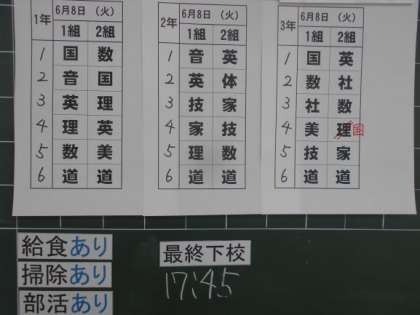 1年 6月8日 (火)
1組 2組
1 国 数
2 音 国
3 英 理
4 理 英
5 数 美
6 道 道
2年 6月8日 (火)
1組 2組
1 音 英
2 英 体
3 技 家
4 家 技
5 理 数
6 道 道
3年 6月8日 (火)
1組 2組
1 国 英
2 数 社
3 社 数
4 美 理 国
5 技 家
6 道 道
給食あり
掃除あり
部活あり
最終下校
17:45